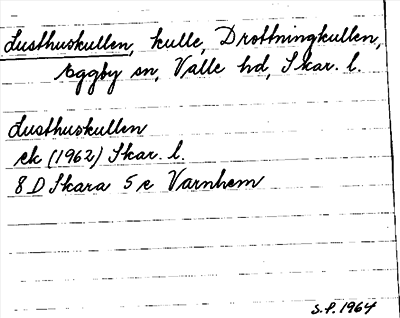 Lusthuskullen, kulle, Drottningkullen,
Eggby sn, Valle hd, Skar. l.
Lusthuskullen
ek (1962) Skar. l.
8 D Skara 5 e Varnhem
S.P. 1964